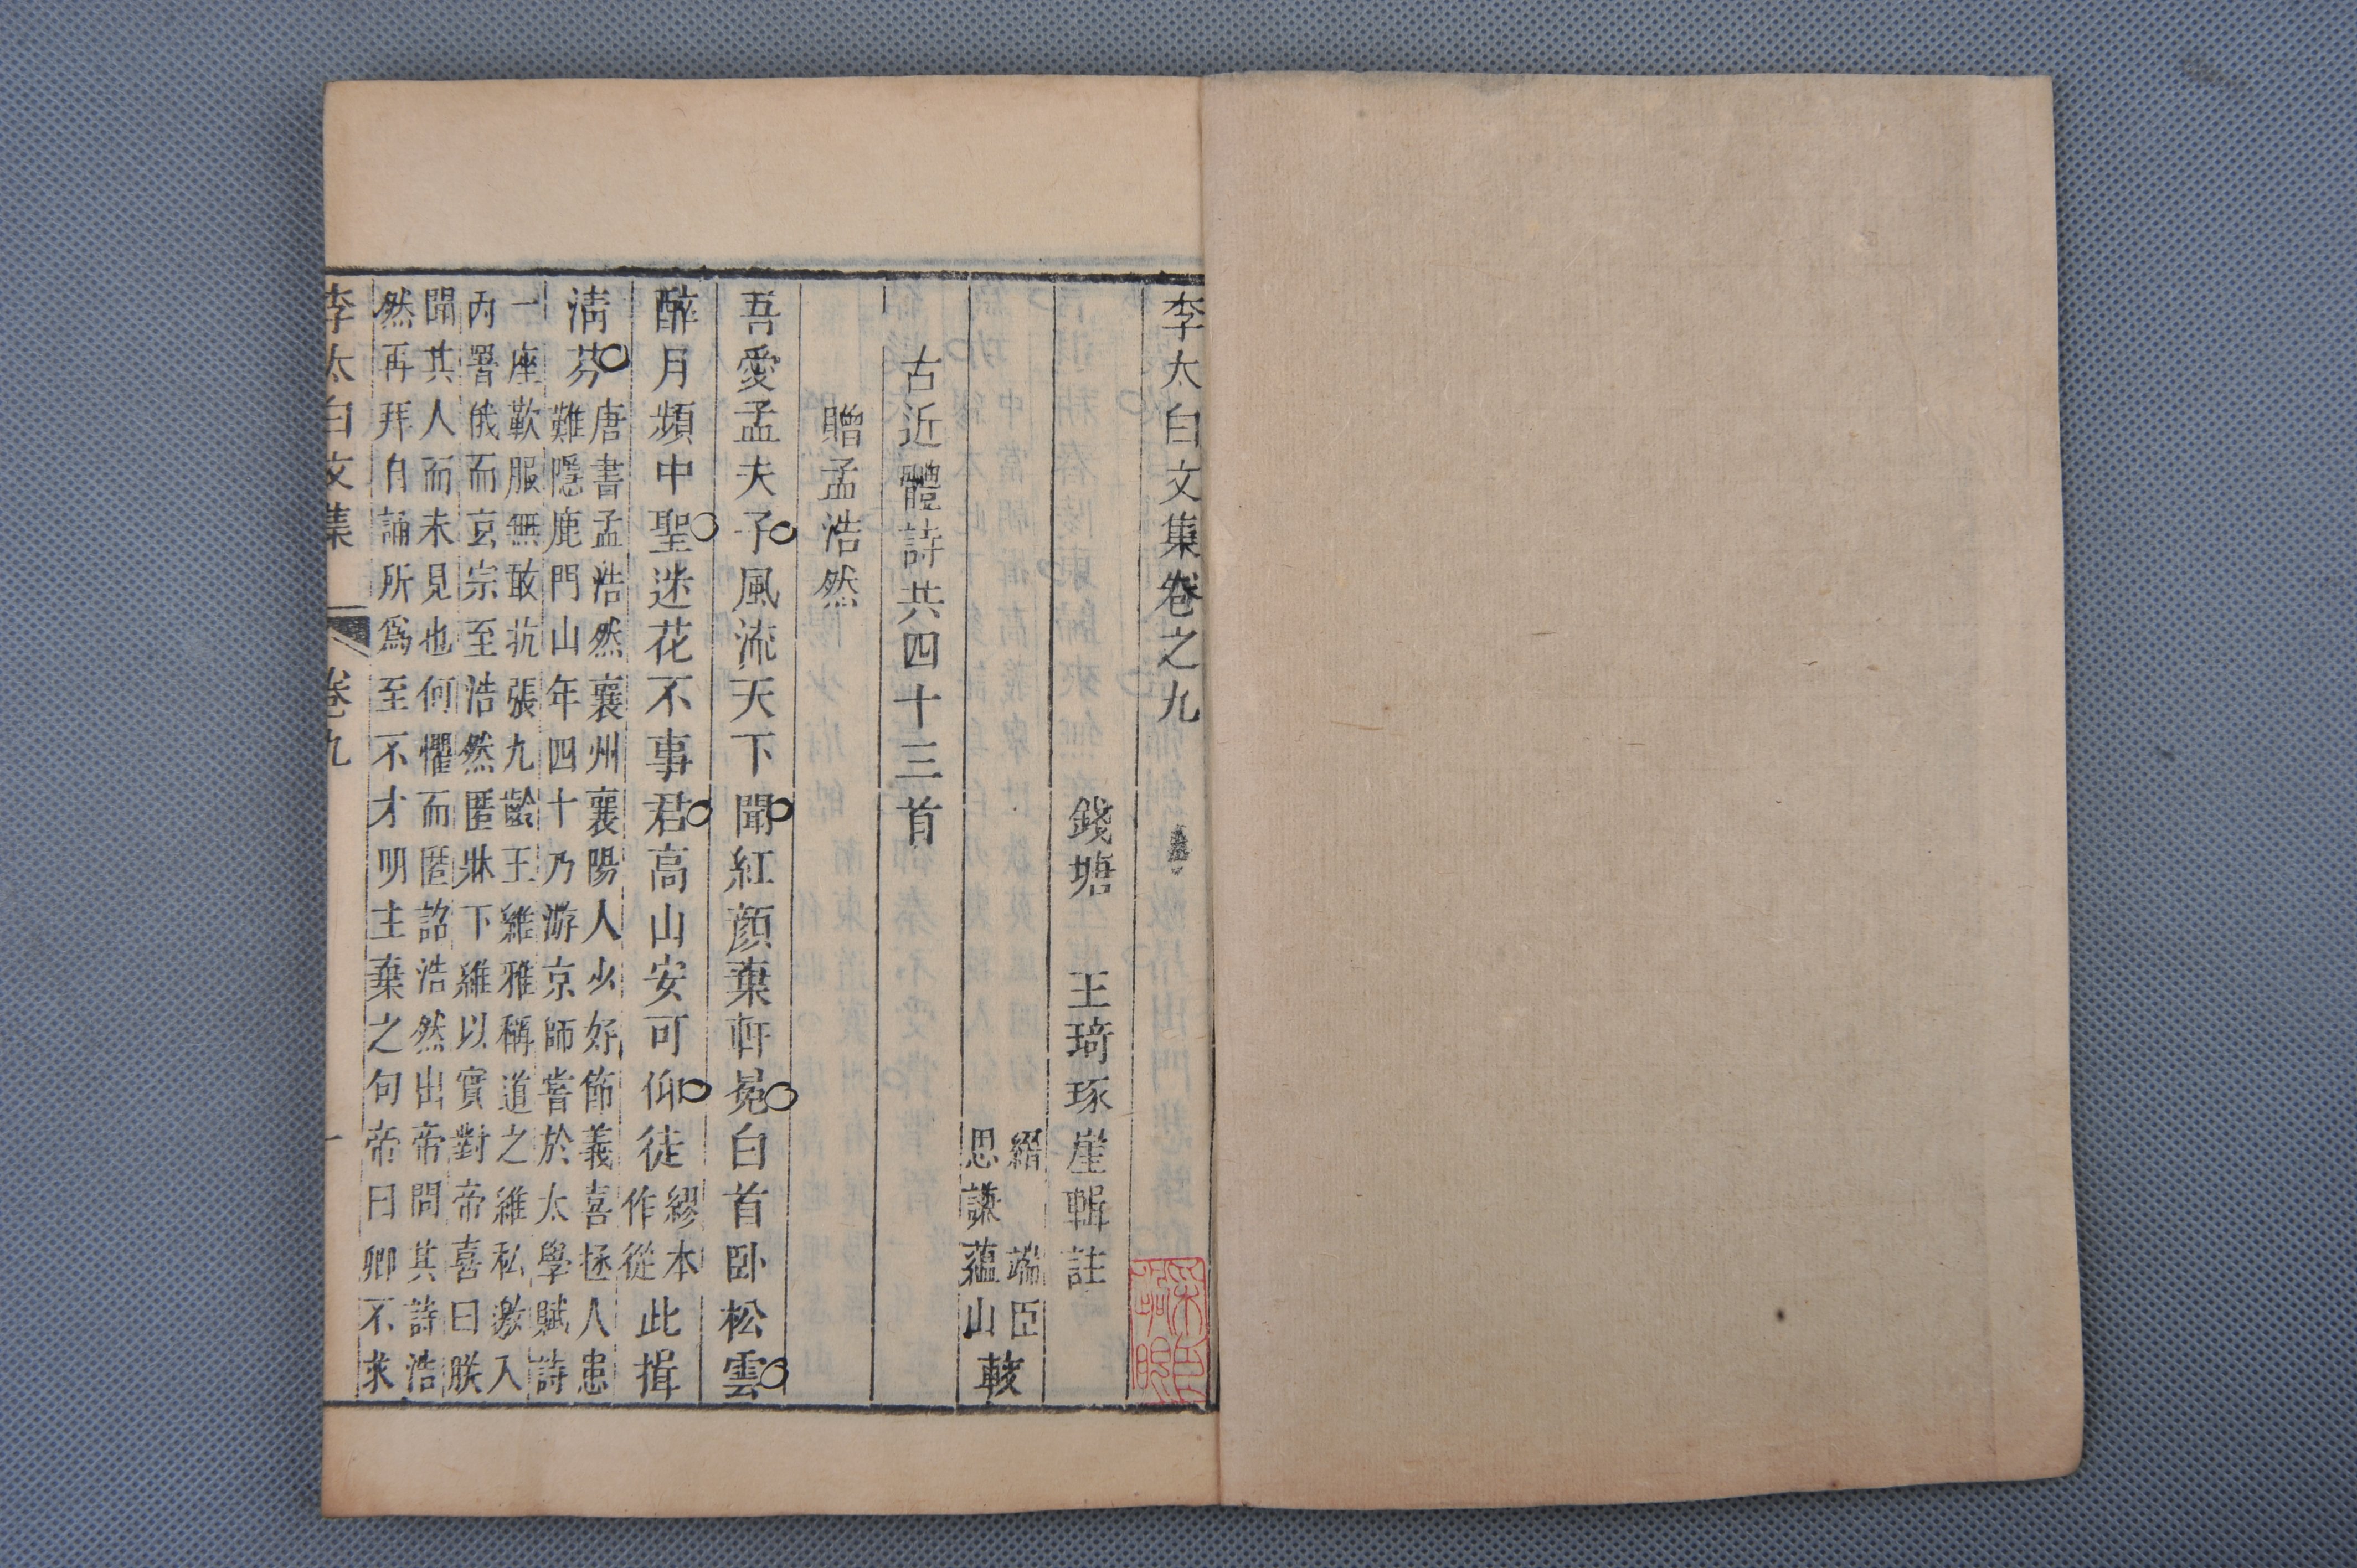 李太白文集卷之九
錢塘 王琦琢崖輯註
縉 端臣
思謙蘊山
較
古近體詩共四十三首
贈孟浩然
吾愛孟夫子風流天下聞紅顏棄軒冕白首卧松雲
醉月頻中聖迷花不事君高山安可仰徒
繆本
作從
此揖
清芬
唐書孟浩然襄州襄陽人少好節義喜拯人患
難隱鹿門山年四十乃游京師嘗於太學賦詩
一座歎服無敢抗張九齡王維雅稱道之維私邀入
內署俄而玄宗至浩然匿牀下維以實對帝喜曰朕
聞其人而未見也何懼而匿詔浩然出帝問其詩浩
然再拜自誦所爲至不才明主棄之句帝曰卿不求
李太白文集 卷九 一